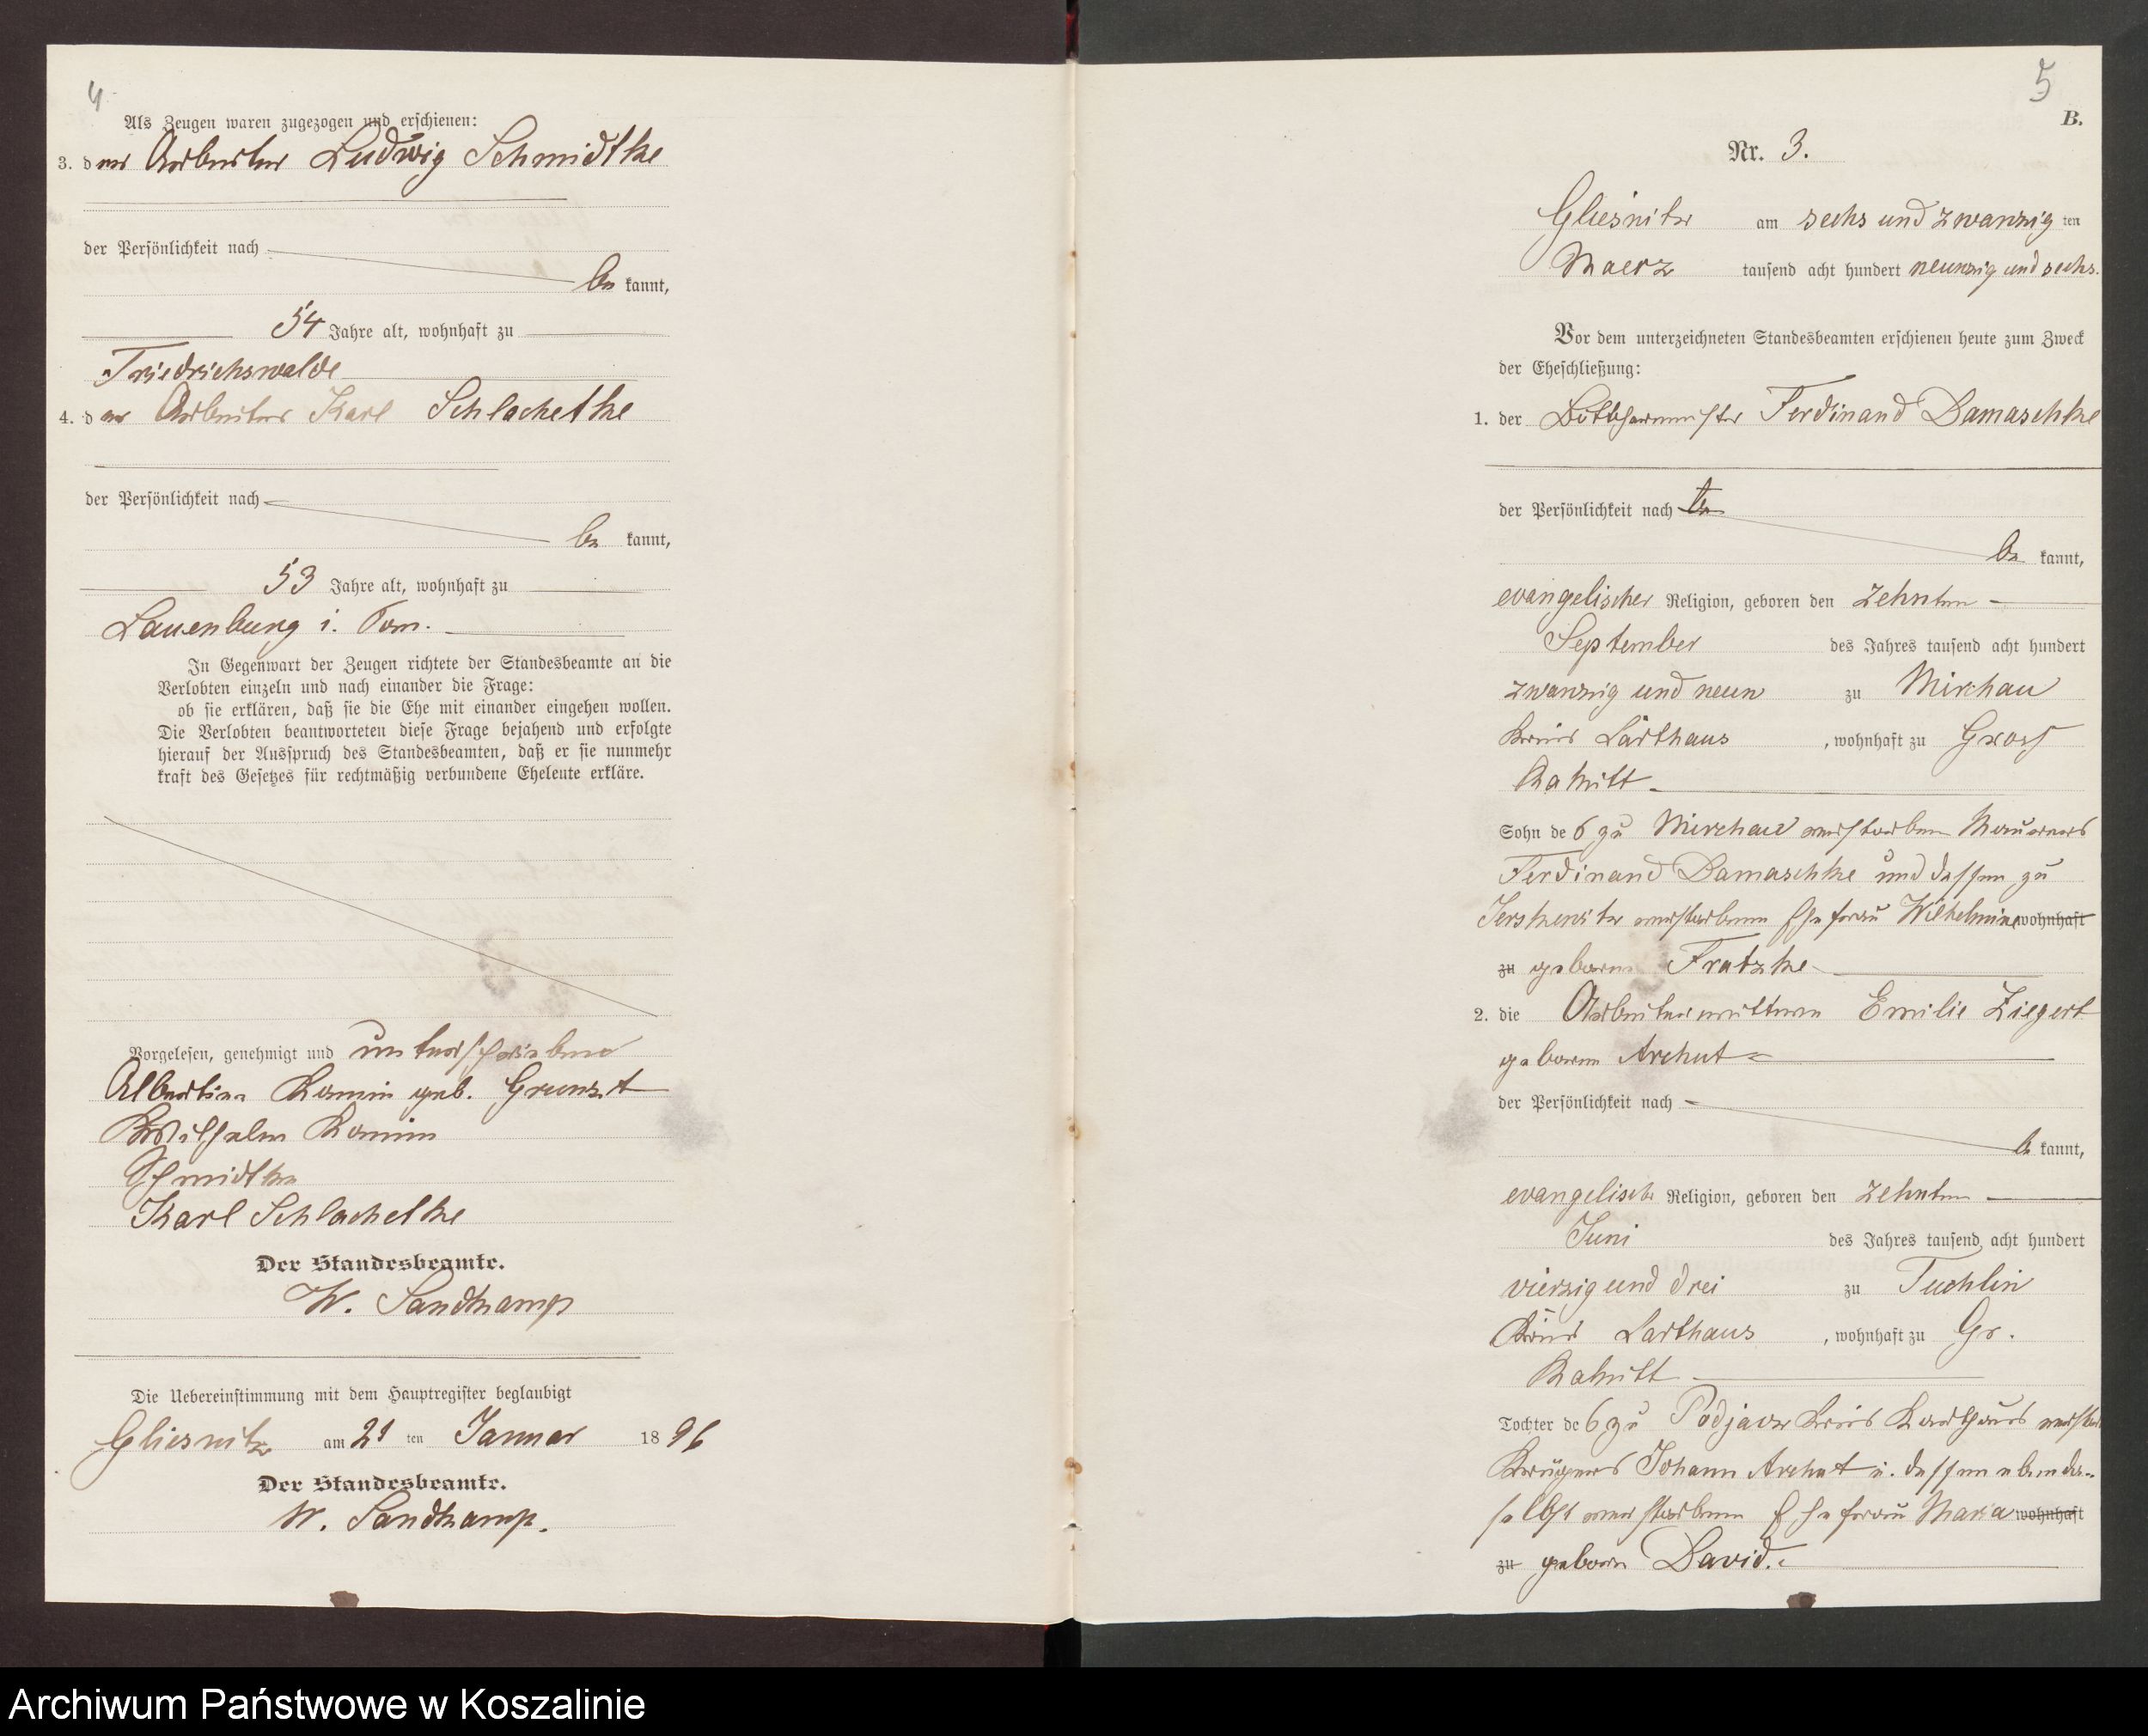 4
Als Zeugen waren zugezogen und erschienen:
3. der Arbeiter Ludwig Schmidtke
der Persönlichkeit nach
be kannt,
54 Jahre alt, wohnhaft zu
Friedrichswalde
4. der Arbeiter Karl Schlachetke
der Persönlichkeit nach
be kannt,
53 Jahre alt, wohnhaft zu
Lauenburg i. Pom.
In Gegenwart der Zeugen richtete der Standesbeamte an die
Verlobten einzeln und nach einander die Frage:
ob sie erklären, daß sie die Ehe mit einander eingehen wollen.
Die Verlobten beantworteten diese Frage bejahend und erfolgte
hierauf der Ausspruch des Standesbeamten, daß er sie nunmehr
kraft des Gesetzes für rechtmäßig verbundene Eheleute erkläre.
Vorgelesen, genehmigt und unterschrieben
Albertine Kamin geb.
Wilhelm Kamin
Schmidtke
Karl Schlachetke
Der Standesbeamte.
W. Sandkamp
Die Uebereinstimmung mit dem Hauptregister beglaubigt
Gliesnitz am 21 ten Januar 1896
Der Standesbeamte.
W. Sandkamp.
5
B.
Nr. 3.
Gliesnitz am sechs und zwanzig ten
Maerz tausend acht hundert neunzig und sechs.
Vor dem unterzeichneten Standesbeamten erschienen heute zum Zweck
der Eheschließung:
1. der Böttchermeister Ferdinand Damaschke
der Persönlichkeit nach be
be kannt,
evangelischer Religion, geboren den zehnten
September des Jahres tausend acht hundert
zwanzig und neun zu Mirchau
Kreis Carthaus, wohnhaft zu Gross
Rakitt
Sohn des zu Mirchau verstorbenen Maurers
Ferdinand Damaschke und dessen zu
Jerskewitz verstorbenen Ehefrau Wilhelmine wohnhaft
zu geborene Fratzke
2. die Arbeiterwittwe Emilie Ziegert
geborene Archut
der Persönlichkeit nach
be kannt,
evangelische Religion, geboren den zehnten
Juni des Jahres tausend acht hundert
vierzig und drei zu Tuchlin
Kreis Carthaus, wohnhaft zu Gr.
Rakitt
Tochter des zu Podjaz Kreis Karthaus
Krügers Johann Archut u. dessen ebenda-
selbst verstorbenen Ehefrau Maria wohnhaft
zu geboren David.
Archiwum Państwowe w Koszalinie